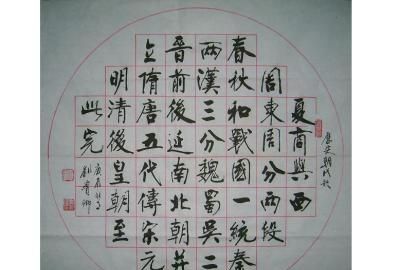 歷史朝代歌
夏商與西
周東周分兩段
春秋和戰國一統秦
兩漢三分魏蜀吳二
晉前後延南北朝并
立隋唐五代傳宋元
明清後皇朝至
此完